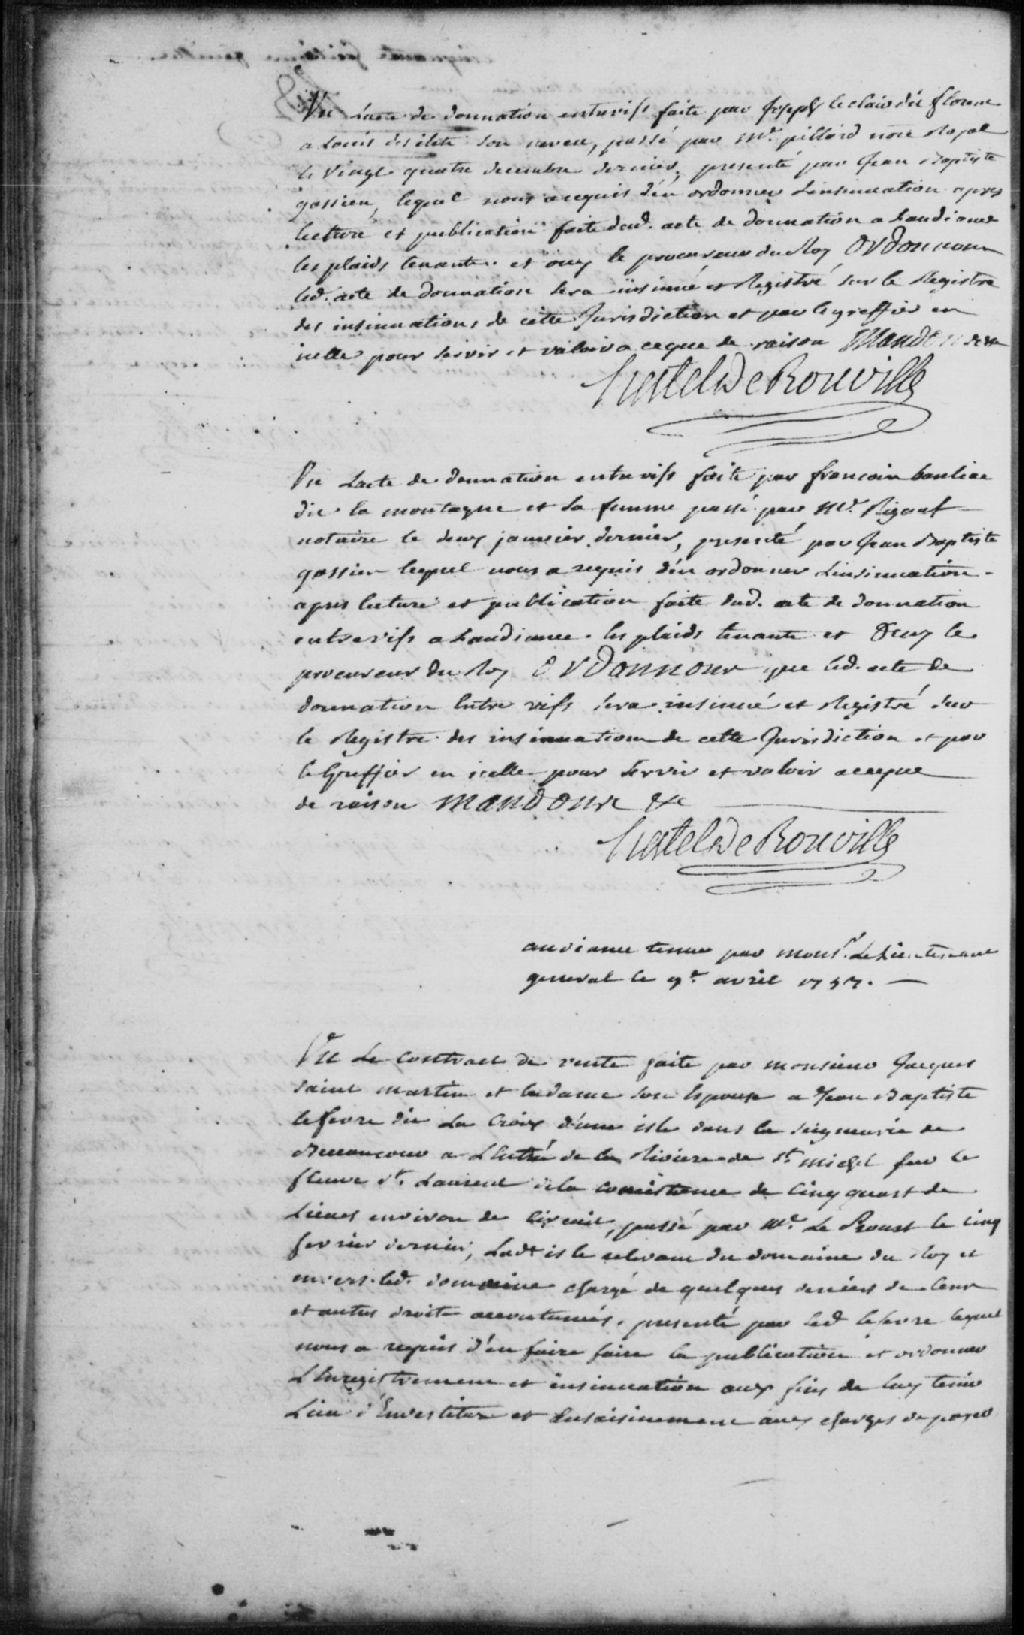 Vu Lacte de donnation entrevifs faite par Joseph leclair dit florene
a Louis delitte son neveu, passé par Me. pillard nore Royal
le vingt quatre decembre dernier, presenté par Jean Baptiste
gassien, lequel nous a requis d'en ordonner Linsinuation apres
lecture et publication faite dud. acte de donnation a Laudiance
les plaids tenante. et ouy le procureur du Roy Ordonnons
led. acte de donnation sera insinué et Registré sur le Registre
des insinuations de cette Jurisdiction et par le greffier en
icelle pour servir et valoir a ceque de raison Mandons &ca
hertel de Rouville
Vu Lacte de donnation entrevifs faite par francois banliac
dit la montagne et sa femme passé par Me. Rigaut
notaire le deux janvier dernier, presenté par Jean Baptiste
gassien lequel nous a requis d'en ordonner Linsinuation
apres lecture et publication faite dud. acte de donnation
entrevifs a Laudiance. les plaids tenante et Ouy le
procureur du Roy Ordonnons que led. acte de
donnation Entre vifs sera insinué et Registré sur
le Registre des insinuations de cette Jurisdiction et par
le Greffier en icelle pour servir et valoir a ceque
de raison Mandons &c
hertel de Rouville
audiance tenue par Monsr. Le Lieutenant
general le 9e. avril 1757.
Vu Le contract de vente faite par monsieur Jacques
saint martin et ladame son Epouse a Jean Baptiste
lefevre dit La Croix d'une isle dans la seigneurie de
Becancour a L'Entré de la Riviere de St. Michel sur le
fleuve St. Laurent de la consistence de cinq quart de
Lieues environ de circuit, passé par Me. Le Proust le cinq
fevrier dernier, Ladte isle relevant du domaine du Roy et
envers led. domaine chargé de quelques deniers de Cens
et autres droits accoutumés. presenté par led lefevre lequel
nous a requis d'en faire faire la publication et ordonner
L'Enregistrement et insinuation aux fins de luy tenir
Lieu d'Envestiture et Ensaisinement aux charges de payer